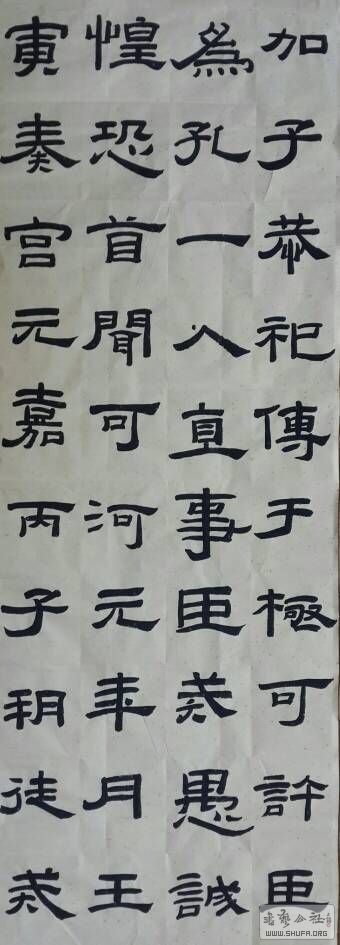 加子恭祀傳于極可許臣
為孔一人直事臣戒愚誠
惶恐首聞可河元年月壬
寅奏宮元嘉丙子朔徒戒
書藝公社
WWW.SHUFA.ORG